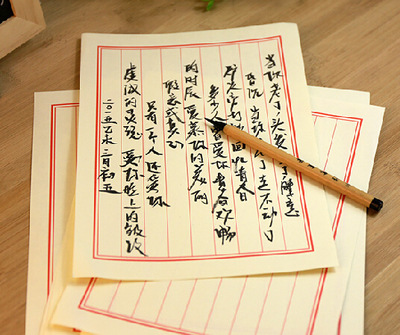 当你老了，头发白了，睡意
昏沉 当你老了 走不动了
炉火旁打盹回忆青春
多少人曾爱你青春欢畅
的时辰 爱慕你的美丽
假意或真心
只有一个人还爱你
虔诚的灵魂 爱你脸上的皱纹
二〇一五乙未 月初五